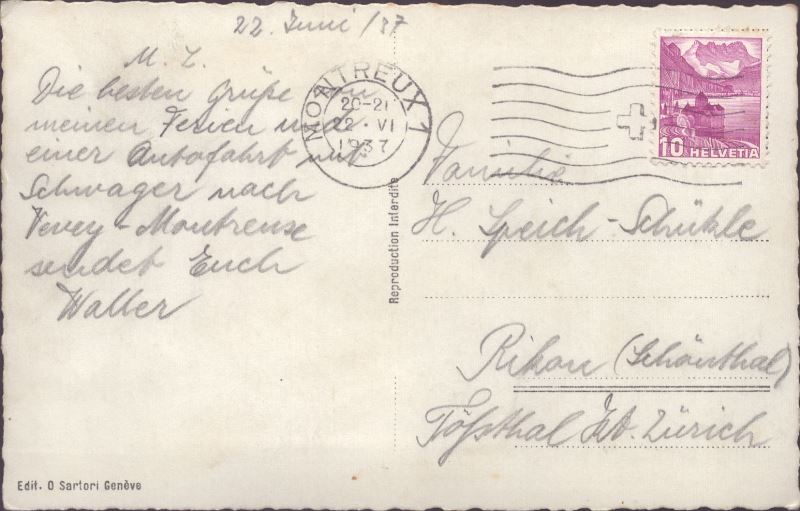 22. Juni /37
M. L.
Die besten Grüße
meinen Ferien und
einer Autofahrt mit
Schwager nach
Vevey-Montreuse
sendet Euch
Walter
MONTREUX 1
20-21
22. VI
1937
10 HELVETIA
Reproduction Interdite
Familie
H. Speich-Schükle
Rikon (Schönthal)
Tößthal Kt. Zürich
Edit. O Sartori Genève